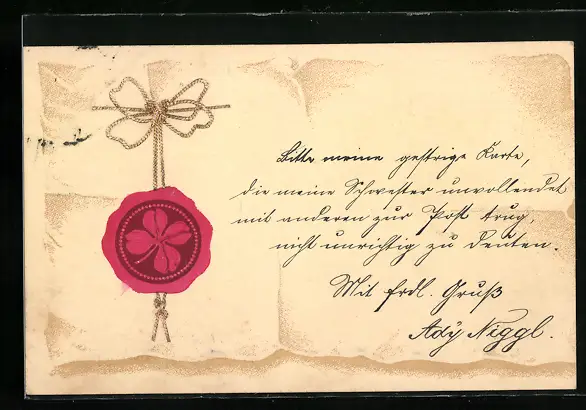 Bitte meine gestrige Karte,
die meine Schwester unvollendet
mit anderen zur Post trug,
nicht unrichtig zu deuten.
Mit frdl. Gruß
Ady Niggl.